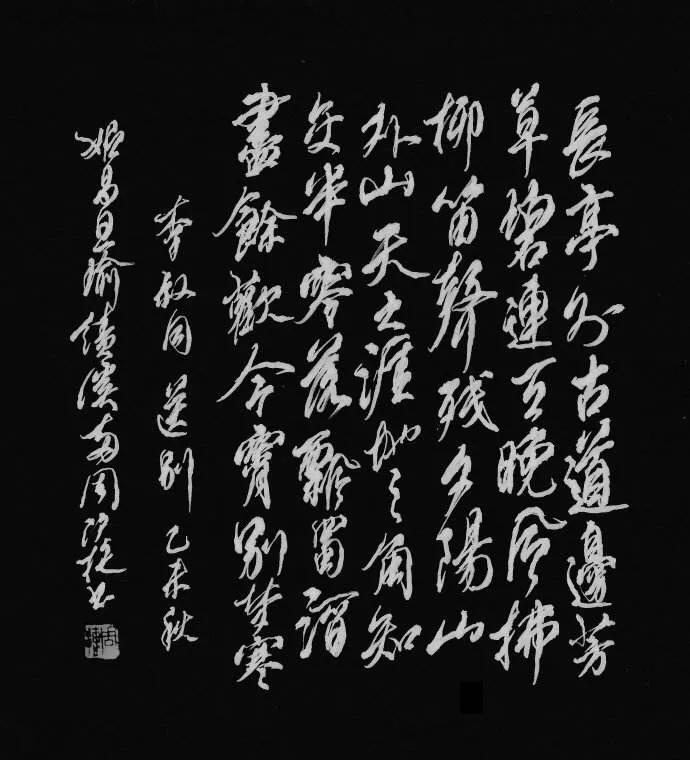 長亭外古道邊芳
草碧連晚風拂
柳笛聲殘夕陽山
外山天之涯地之角知
交半零落瓢
盡餘歡今宵別夢寒
李叔同送別乙未秋
南周書